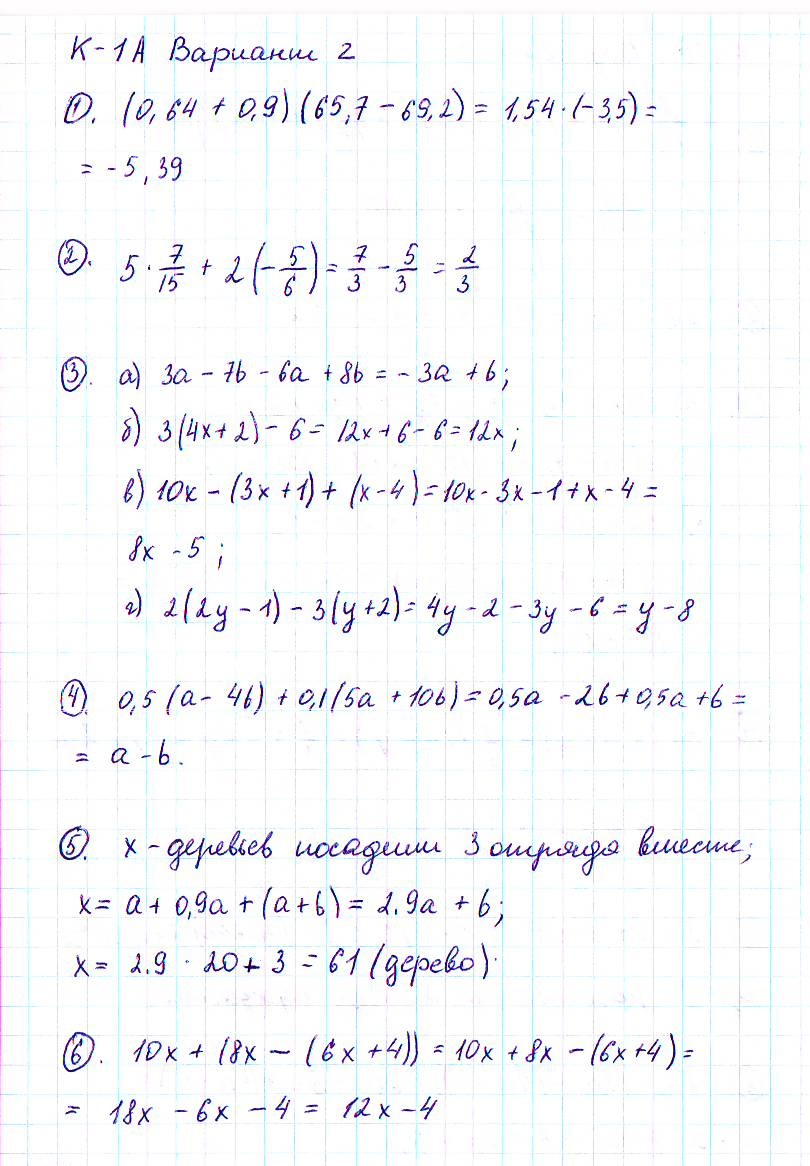 К-1А Вариант 2
①. (0,64 + 0,9)(65,7 - 69,2) = 1,54·(-3,5) =
= -5,39
②. 5 · 7/15 + 2(-5/6) = 7/3 - 5/3 = 2/3
③. а) 3a - 7b - 6a + 8b = -3a + b;
б) 3(4x + 2) - 6 = 12x + 6 - 6 = 12x;
в) 10x - (3x + 1) + (x - 4) = 10x - 3x - 1 + x - 4 =
8x - 5 ;
г) 2(2y - 1) - 3(y + 2) = 4y - 2 - 3y - 6 = y - 8
④. 0,5(a - 4b) + 0,1(5a + 10b) = 0,5a - 2b + 0,5a + b =
= a - b.
⑤. x - деревьев посадили 3 отряда вместе;
x = a + 0,9a + (a + b) = 2.9a + b;
x = 2.9 · 20 + 3 = 61 (дерево).
⑥. 10x + (8x - (6x + 4)) = 10x + 8x - (6x + 4) =
= 18x - 6x - 4 = 12x - 4